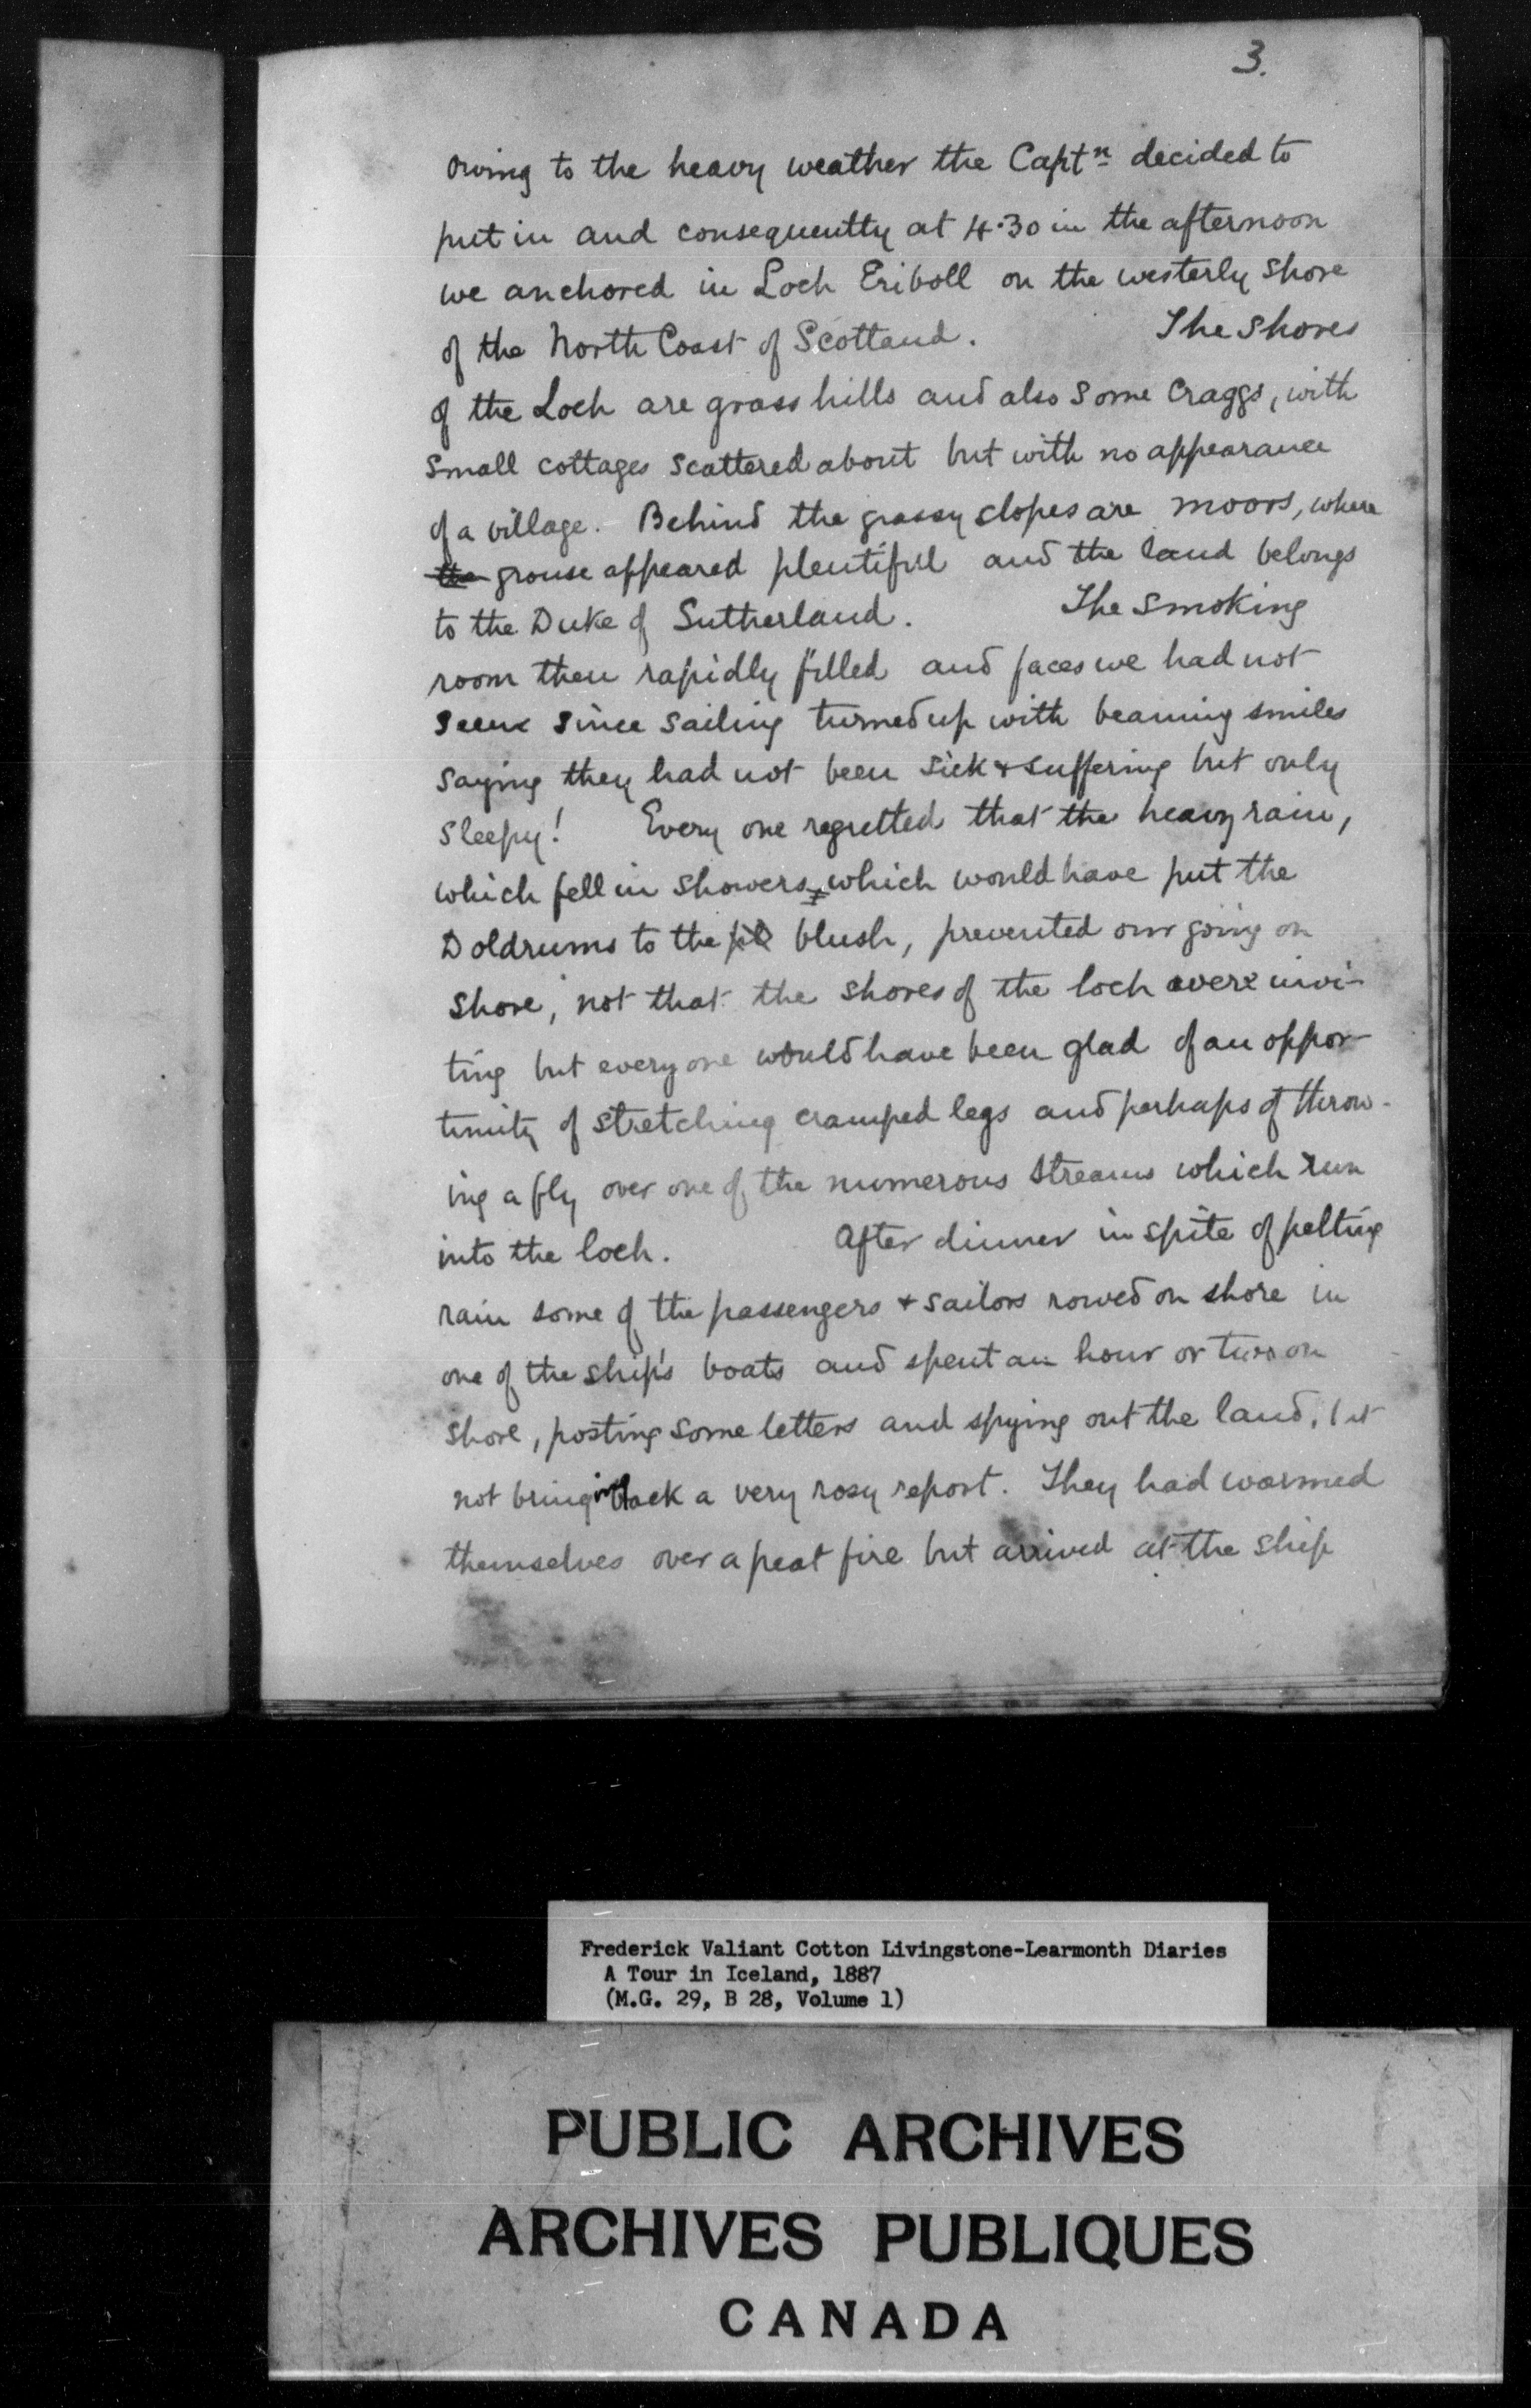 3.
owing to the heavy weather the Captn decided to
put in and consequently at 4.30 in the afternoon
we anchored in Loch Eriboll on the westerly shore
of the North Coast of Scotland. The Shores
of the Loch are grass hills and also some Craggs, with
small cottages scattered about but with no appearance
of a village. Behind the grassy slopes are moors, where
the grouse appeared plentiful and the land belongs
to the Duke of Sutherland. The Smoking
room then rapidly filled and faces we had not
seen since sailing turned up with beaming smiles
saying they had not been sick & suffering but only
sleepy! Every one regretted that the heavy rain,
which fell in showers which would have put the
Doldrums to the blush, prevented our going on
shore, not that the shores of the loch were invi-
ting but every one would have been glad of an oppor-
tunity of stretching cramped legs and perhaps of throw-
ing a fly over one of the numerous streams which run
into the loch. After dinner in spite of pelting
rain some of the passengers & sailors rowed on shore in
one of the ship's boats and spent an hour or two on
shore, posting some letters and spying out the land, but
not bringing back a very rosy report. They had warmed
themselves over a peat fire but arrived at the ship
Frederick Valiant Cotton Livingstone-Learmonth Diaries
A Tour in Iceland, 1887
(M.G. 29, B 28, Volume 1)
PUBLIC ARCHIVES
ARCHIVES PUBLIQUES
CANADA